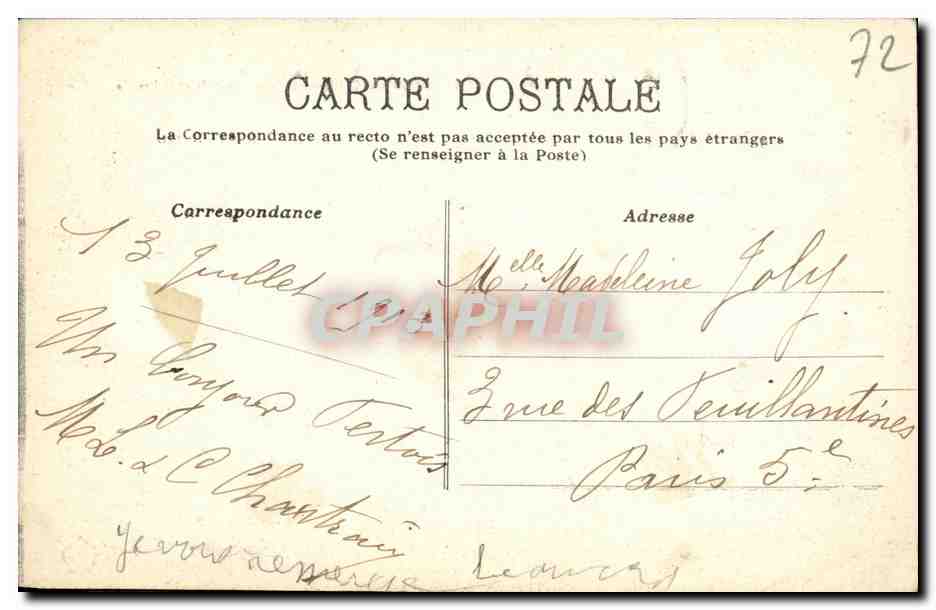 72
CARTE POSTALE
La Correspondance au recto n'est pas acceptée par tous les pays étrangers
(Se renseigner à la Poste)
Correspondance
13 Juillet
Un bonjour
M. L. & C Chantrain
Je vous remercie
Adresse
Melle Madeleine Joly
3 rue des Feuillantines
Paris 5e
CPAPHIL